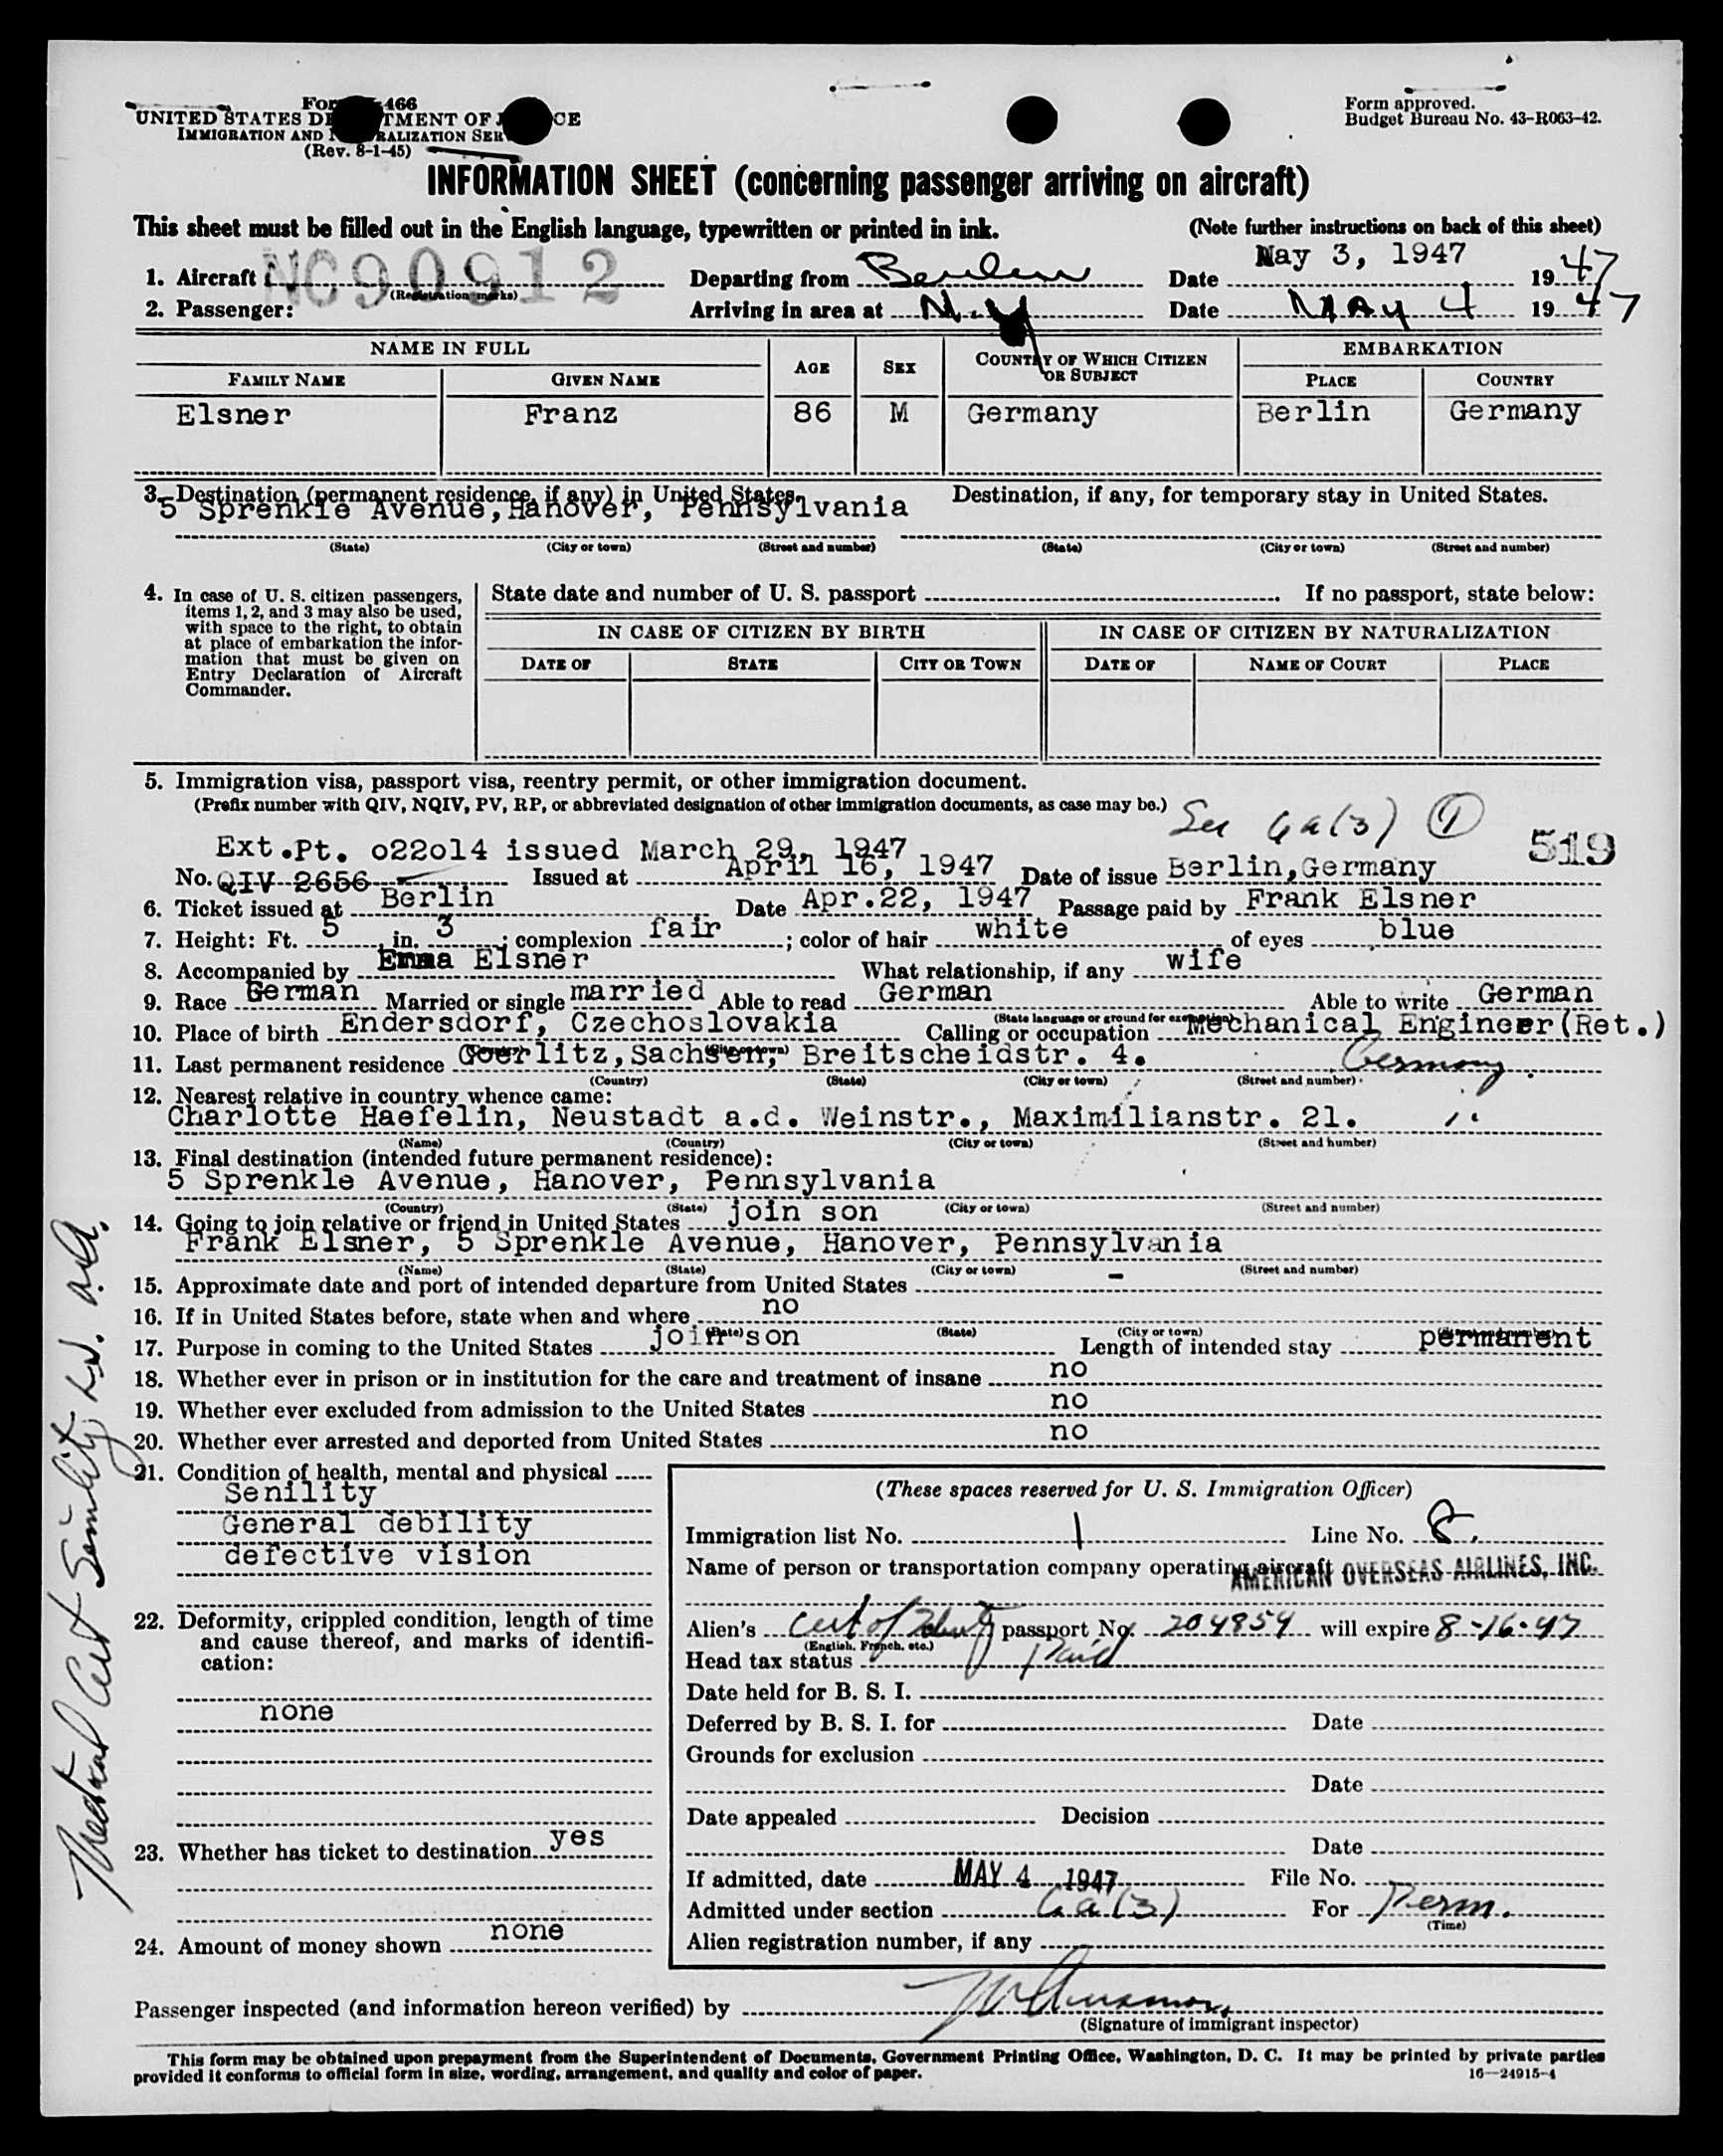 Form 466
UNITED STATES DE TMENT OF J CE
IMMIGRATION AND N RALIZATION SER
(Rev. 8-1-45)
Form approved.
Budget Bureau No. 43-R063-42.
INFORMATION SHEET (concerning passenger arriving on aircraft)
This sheet must be filled out in the English language, typewritten or printed in ink. (Note further instructions on back of this sheet)
1. Aircraft NC90912 (Registration marks) Departing from Berlin Date May 3, 1947 1947
2. Passenger: Arriving in area at N.Y Date MAY 4 1947
NAME IN FULL AGE SEX COUNTRY OF WHICH CITIZEN OR SUBJECT EMBARKATION
FAMILY NAME GIVEN NAME PLACE COUNTRY
Elsner Franz 86 M Germany Berlin Germany
3. Destination (permanent residence, if any) in United States. Destination, if any, for temporary stay in United States.
5 Sprenkle Avenue, Hanover, Pennsylvania
(State) (City or town) (Street and number) (State) (City or town) (Street and number)
4. In case of U. S. citizen passengers, items 1, 2, and 3 may also be used, with space to the right, to obtain at place of embarkation the information that must be given on Entry Declaration of Aircraft Commander.
State date and number of U. S. passport If no passport, state below:
IN CASE OF CITIZEN BY BIRTH IN CASE OF CITIZEN BY NATURALIZATION
DATE OF STATE CITY OR TOWN DATE OF NAME OF COURT PLACE
5. Immigration visa, passport visa, reentry permit, or other immigration document.
(Prefix number with QIV, NQIV, PV, RP, or abbreviated designation of other immigration documents, as case may be.)
See 6a(3) 1
519
Ext.Pt. o22o14 issued March 29, 1947
No. QIV 2656 Issued at April 16, 1947 Date of issue Berlin, Germany
6. Ticket issued at Berlin Date Apr.22, 1947 Passage paid by Frank Elsner
7. Height: Ft. 5, in. 3; complexion fair; color of hair white of eyes blue
8. Accompanied by Emma Elsner What relationship, if any wife
9. Race German Married or single married Able to read German Able to write German
(State language or ground for exemption)
10. Place of birth Endersdorf, Czechoslovakia Calling or occupation Mechanical Engineer(Ret.)
(Country) (City or town)
11. Last permanent residence Goerlitz, Sachsen, Breitscheidstr. 4. Germany.
(Country) (State) (City or town) (Street and number)
12. Nearest relative in country whence came:
Charlotte Haefelin, Neustadt a.d. Weinstr., Maximilianstr. 21. "
(Name) (Country) (City or town) (Street and number)
13. Final destination (intended future permanent residence):
5 Sprenkle Avenue, Hanover, Pennsylvania
(Country) (State) (City or town) (Street and number)
14. Going to join relative or friend in United States join son
Frank Elsner, 5 Sprenkle Avenue, Hanover, Pennsylvania
(Name) (State) (City or town) (Street and number)
15. Approximate date and port of intended departure from United States -
16. If in United States before, state when and where no
(Date) (State) (City or town) (Street and number)
17. Purpose in coming to the United States join son Length of intended stay permanent
18. Whether ever in prison or in institution for the care and treatment of insane no
19. Whether ever excluded from admission to the United States no
20. Whether ever arrested and deported from United States no
21. Condition of health, mental and physical
Senility
General debility
defective vision
22. Deformity, crippled condition, length of time and cause thereof, and marks of identification:
none
23. Whether has ticket to destination yes
24. Amount of money shown none
(These spaces reserved for U. S. Immigration Officer)
Immigration list No. 1 Line No. 8.
Name of person or transportation company operating aircraft AMERICAN OVERSEAS AIRLINES, INC.
Alien's Cert of Identity passport No. 204854 will expire 8-16-47
(English, French, etc.)
Head tax status Paid
Date held for B. S. I.
Deferred by B. S. I. for Date
Grounds for exclusion
Date
Date appealed Decision
Date
If admitted, date MAY 4 1947 File No.
Admitted under section 6a(3) For Perm.
(Time)
Alien registration number, if any
Passenger inspected (and information hereon verified) by
(Signature of immigrant inspector)
This form may be obtained upon prepayment from the Superintendent of Documents, Government Printing Office, Washington, D. C. It may be printed by private parties
provided it conforms to official form in size, wording, arrangement, and quality and color of paper.
16—24915-4
Medical Cert Senility